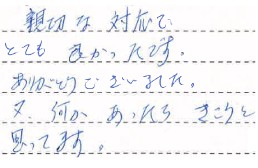 親切な対応で
とても良かったです。
ありがとうございました。
又、何かあったら きこうと
思ってます。